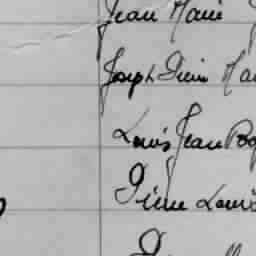 Jean Marie
Joseph Pierre Ma
Louis Jean Ro
Pierre Louis